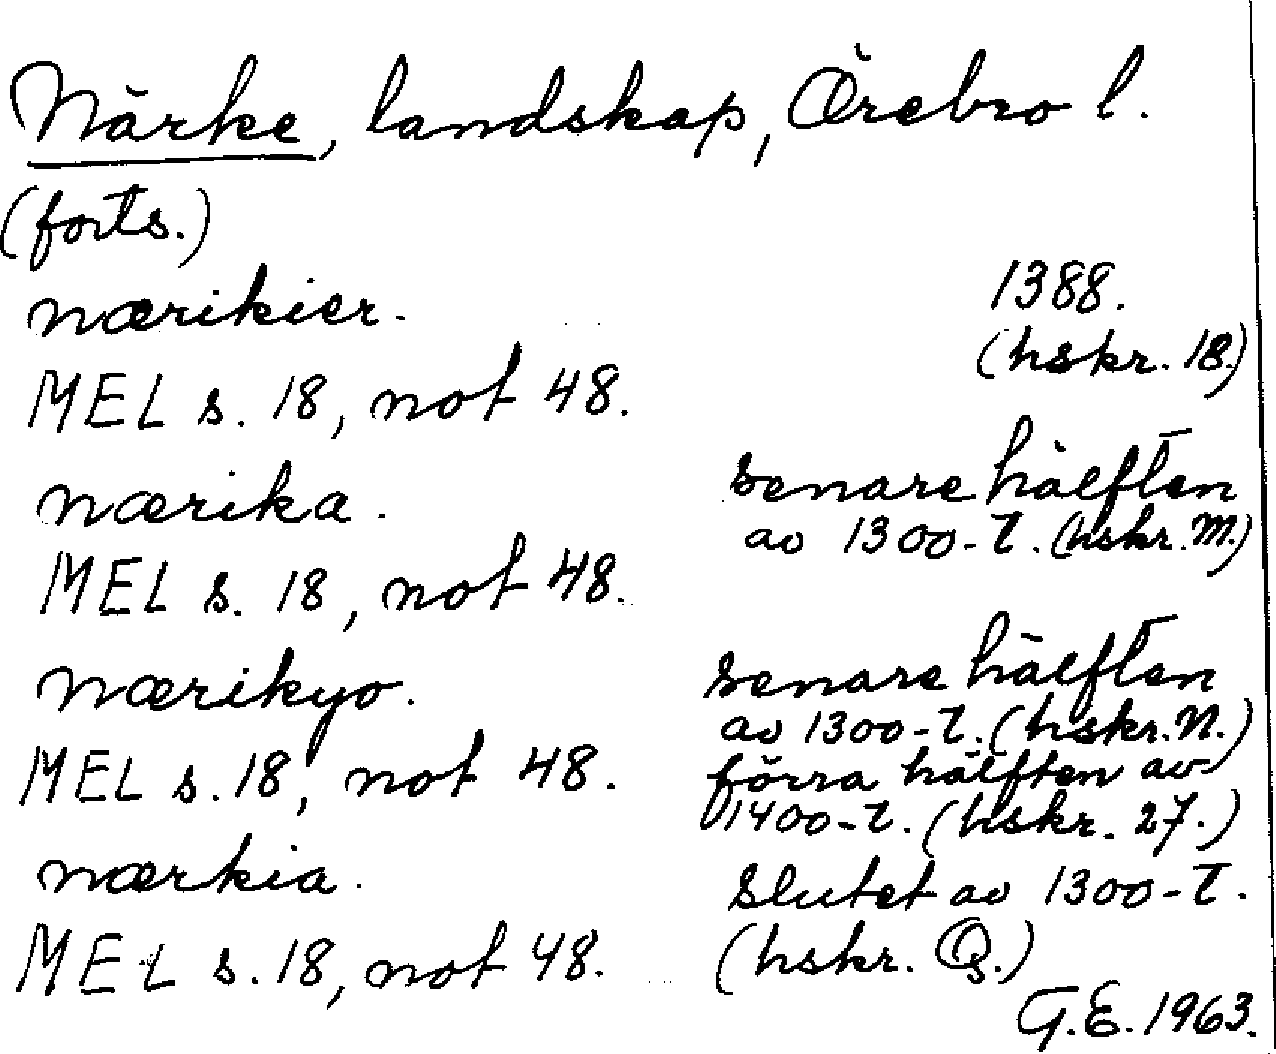 Närke, landskap, Örebro l.
(forts.)
nærikier. 1388.
(hskr. 18.)
MEL s. 18, not 48.
nærika. senare hälften
av 1300-t. (hskr. M.)
MEL s. 18, not 48.
nærikyo. senare hälften
av 1300-t. (hskr. N.)
MEL s. 18, not 48. förra hälften av
1400-t. (hskr. 27.)
nærkia. slutet av 1300-t.
MEL s. 18, not 48. (hskr. Q.)
G.E. 1963.